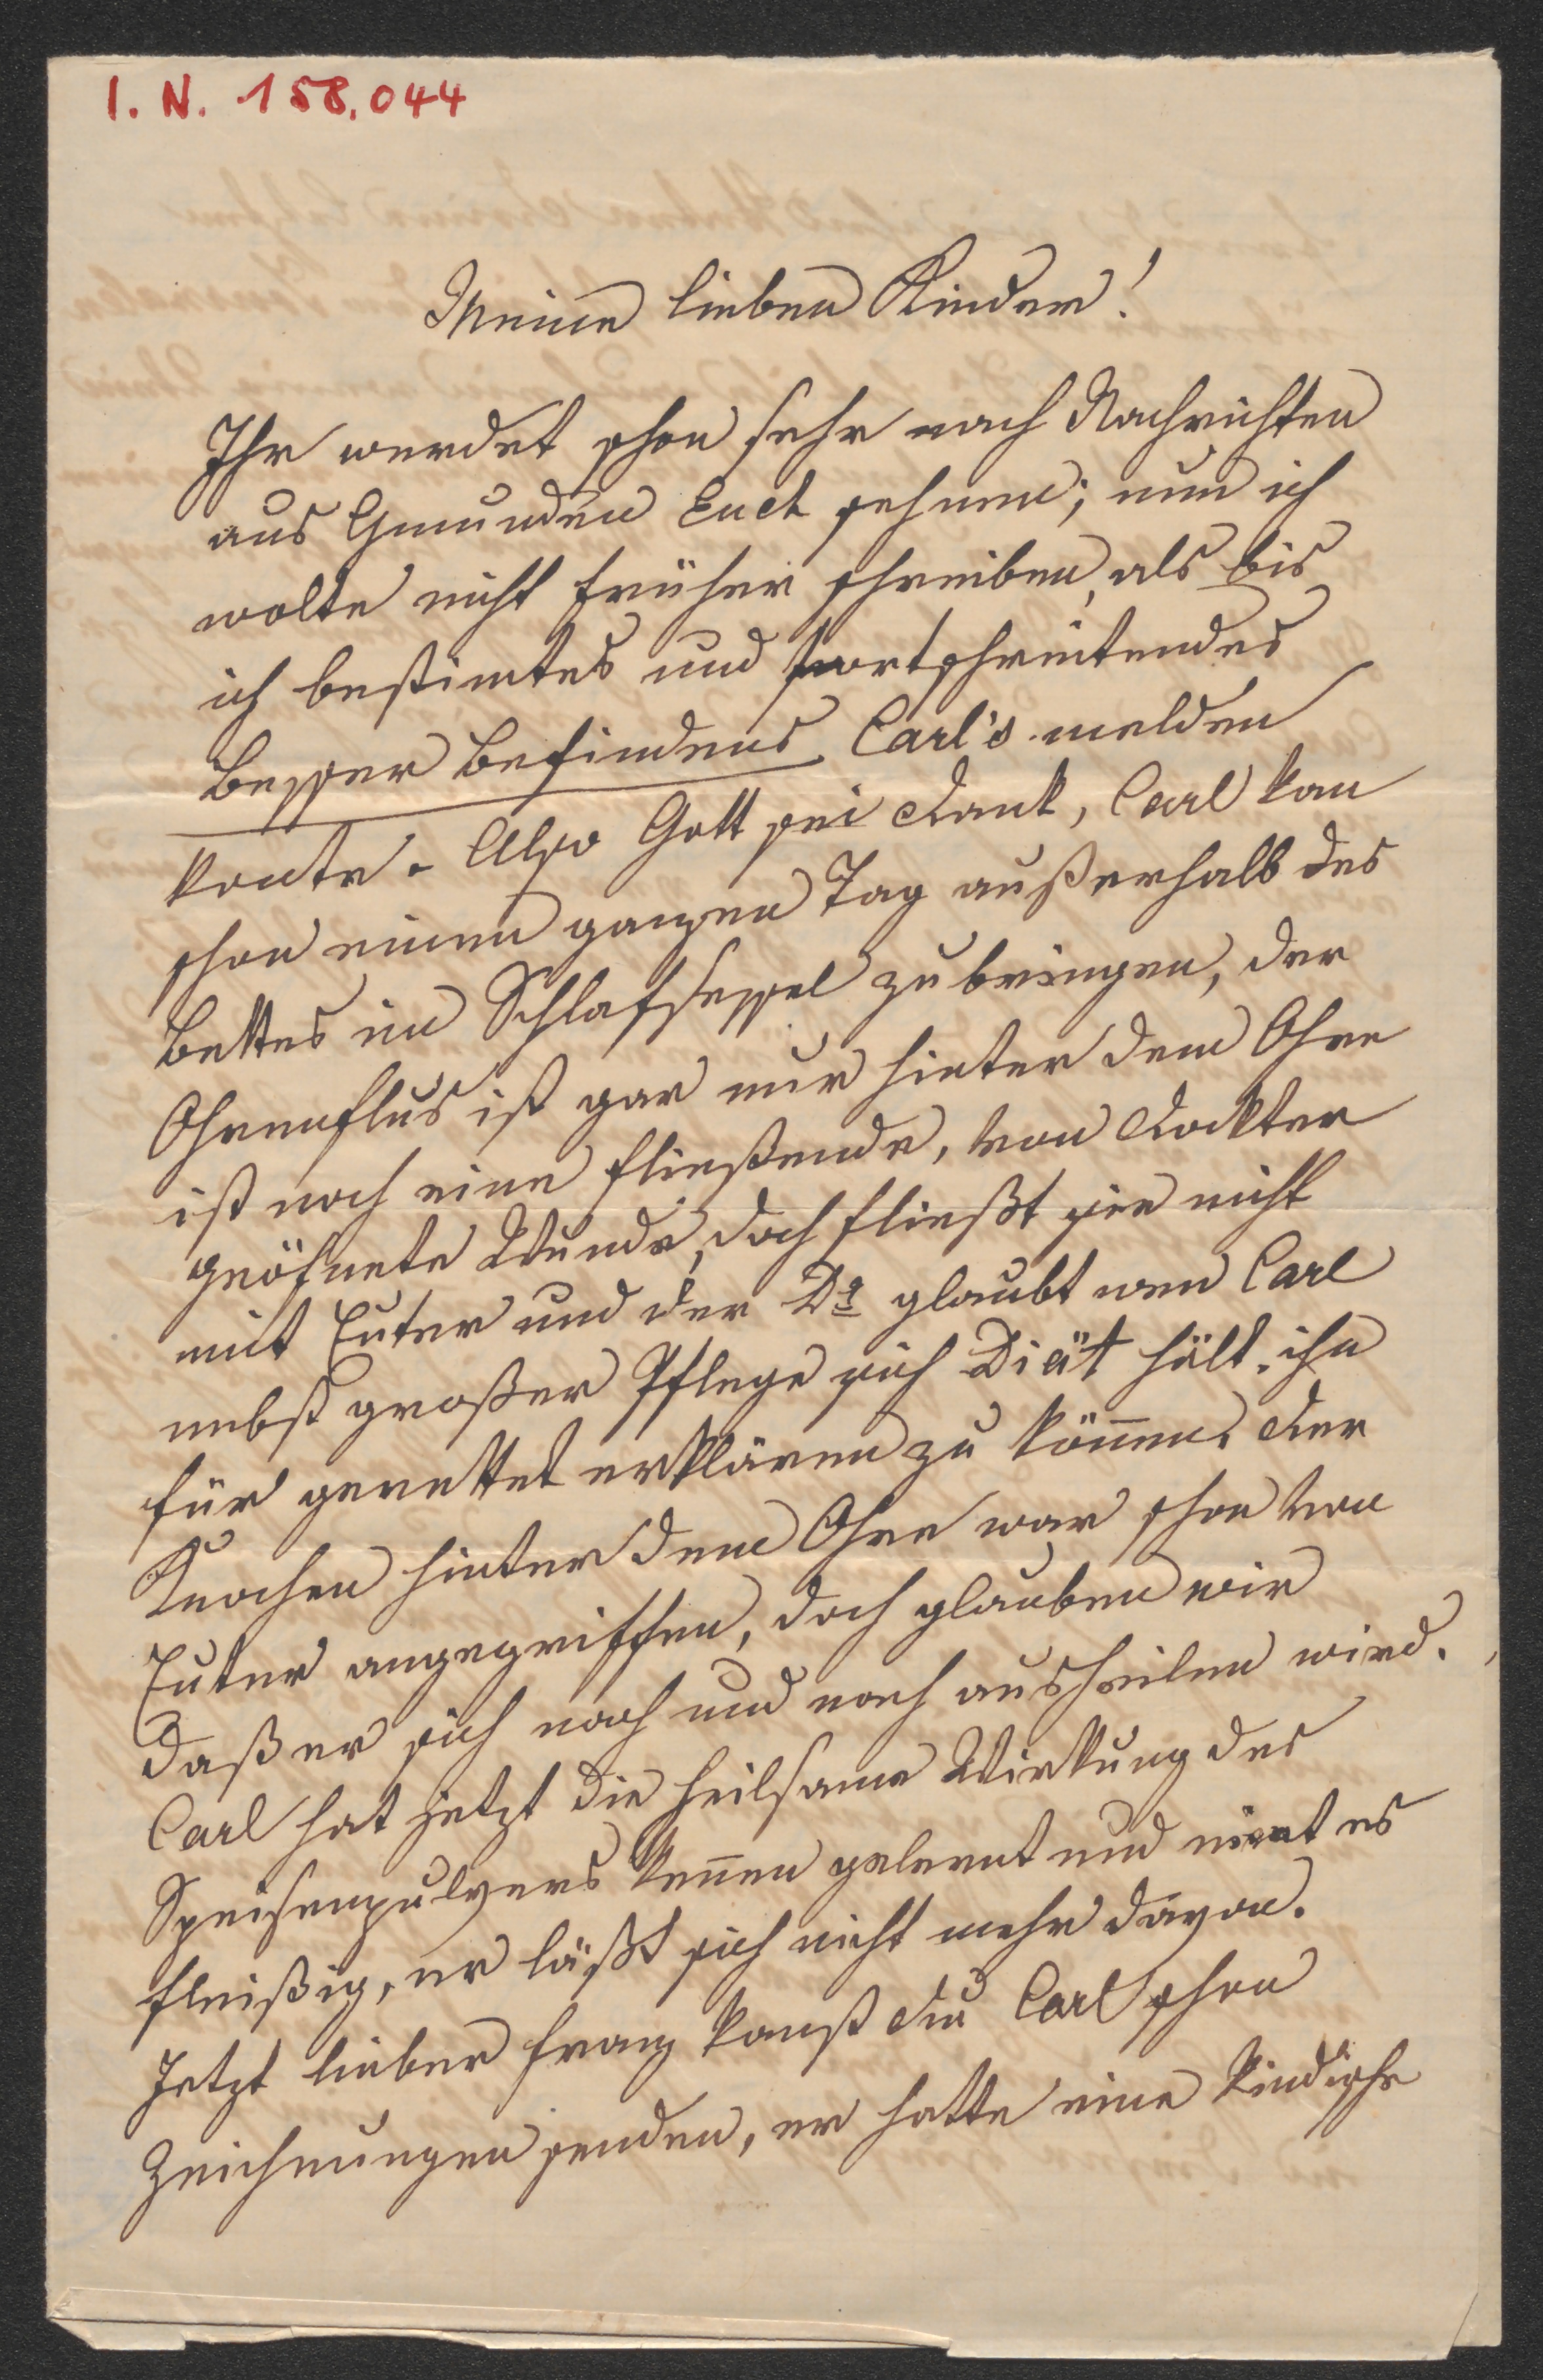 I. N. 158.044
Meine lieben Kinder!
Ihr werdet schon sehr nach Nachrichten
aus Gmunden Euch sehnen; nun ich
wolte nicht früher schreiben, als bis
ich bestimtes und fortschreitendes
Besser Befindens Carl's melden
konte. Also Gott sei Dank, Carl kan
schon einen ganzen Tag außerhalb des
Bettes im Schlafsessel zubringen, der
Ohrenflus ist gar nur hinter dem Ohre
ist noch eine fließende, von Dockter
geöfnete Wunde, doch fließt sie nicht
mit Euter und der Dr glaubt wen Carl
nebst großer Pflege sich Diät hält, ihn
für gerettet erklären zu können. Der
Knochen hinter dem Ohre war schon von
Euter angegriffen, doch glauben wir
daß er sich nach und nach ausheilen wird.
Carl hat jetzt die heilsame Wirkung des
Speisenpulvers kennen gelernt und nimt es
fleißig, er läßt sich nicht mehr davon.
Jetzt lieber Franz kanst Du Carl schon
Zeichnungen senden, er hatte eine kindische